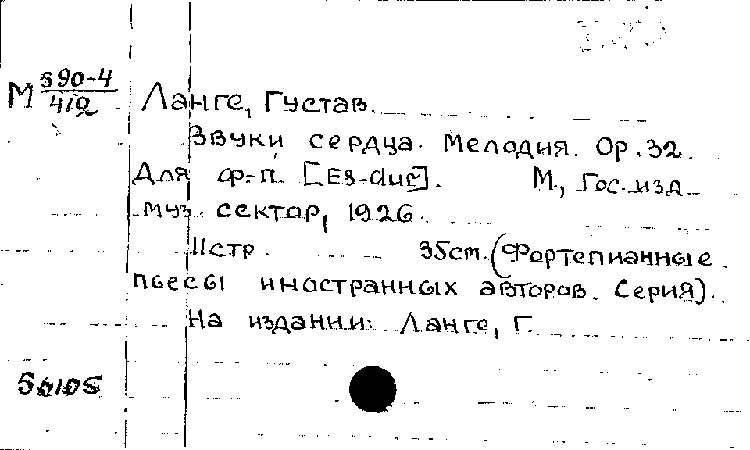 М 390-4
412
Ланге, Густав.
Звуки сердца. Мелодия. Ор. 32.
Для ф-п. [Es-dur]. М., Гос. изд.
муз. сектор, 1926.
11стр. 35cm. (Фортепианные
пьесы иностранных авторов. Серия).
На издании: Ланге, Г.